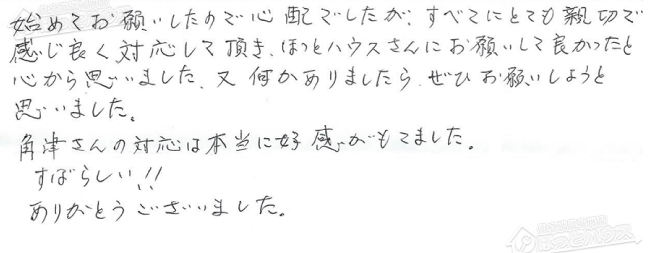 始めてお願いしたので心配でしたが、すべてにとても親切で
感じ良く対応して頂き、ほっとハウスさんにお願いして良かったと
心から思いました。又何かありましたら、ぜひお願いしようと
思いました。
角津さんの対応は本当に好感がもてました。
すばらしい!!
ありがとうございました。